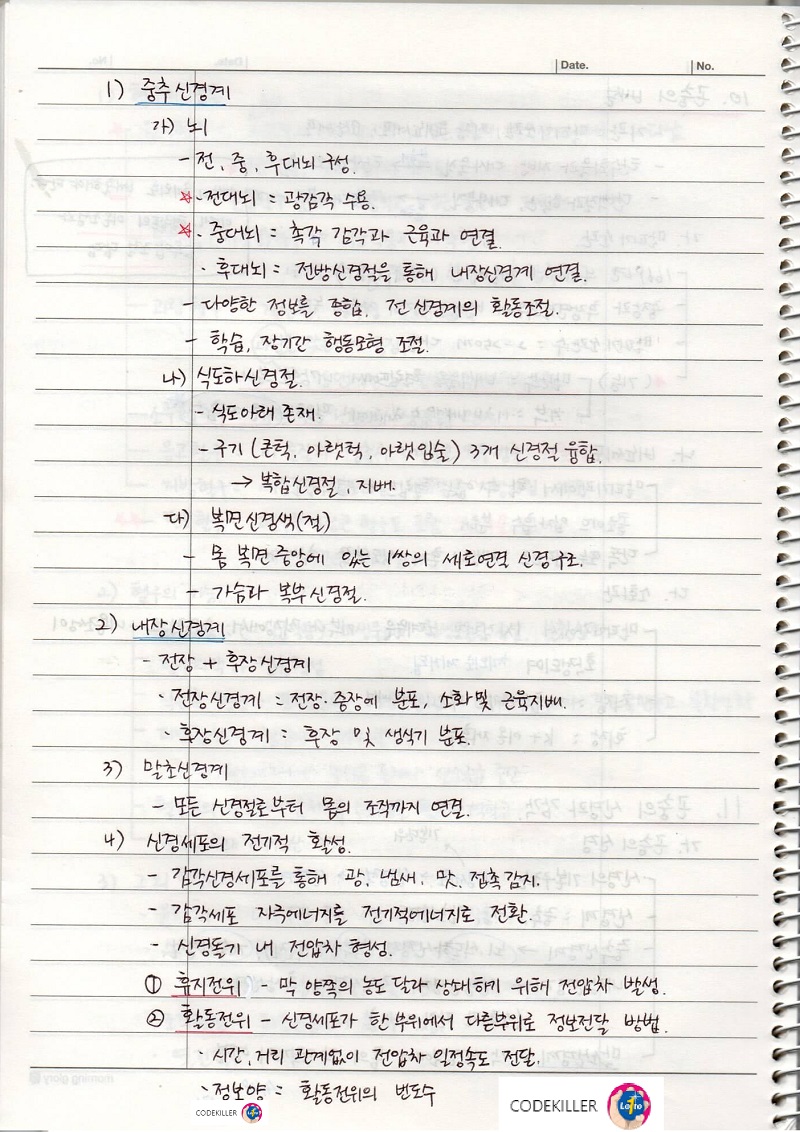 Date. No.
1) 중추신경계
가) 뇌
- 전, 중, 후대뇌 구성.
☆· 전대뇌 = 광감각 수용.
☆· 중대뇌 = 촉각 감각과 근육과 연결.
· 후대뇌 = 전방신경절을 통해 내장신경계 연결.
- 다양한 정보를 종합, 전 신경계의 활동조절.
- 학습, 장기간 행동모형 조절.
나) 식도하신경절.
- 식도아래 존재.
- 구기 (큰턱, 아랫턱, 아랫입술) 3개 신경절 융합.
→ 복합신경절, 지배.
다) 복면신경색(절)
- 몸 복면 중앙에 있는 1쌍의 세로연결 신경구조.
- 가슴과 복부신경절.
2) 내장신경계
- 전장 + 후장신경계
· 전장신경계 = 전장·중장에 분포, 소화 및 근육지배.
· 후장신경계 = 후장 및 생식기 분포.
3) 말초신경계
- 모든 신경절로부터 몸의 조직까지 연결.
4) 신경세포의 전기적 활성.
- 감각신경세포를 통해 광, 냄새, 맛, 접촉감지.
- 감각세포 자극에너지를 전기적에너지로 전환.
- 신경돌기 내 전압차 형성.
① 휴지전위 - 막 양쪽의 농도 달라 상쇄하기 위해 전압차 발생.
② 활동전위 - 신경세포가 한 부위에서 다른부위로 정보전달 방법.
· 시간, 거리 관계없이 전압차 일정속도 전달.
· 정보양 = 활동전위의 빈도수
CODEKILLER
CODEKILLER
morning glory